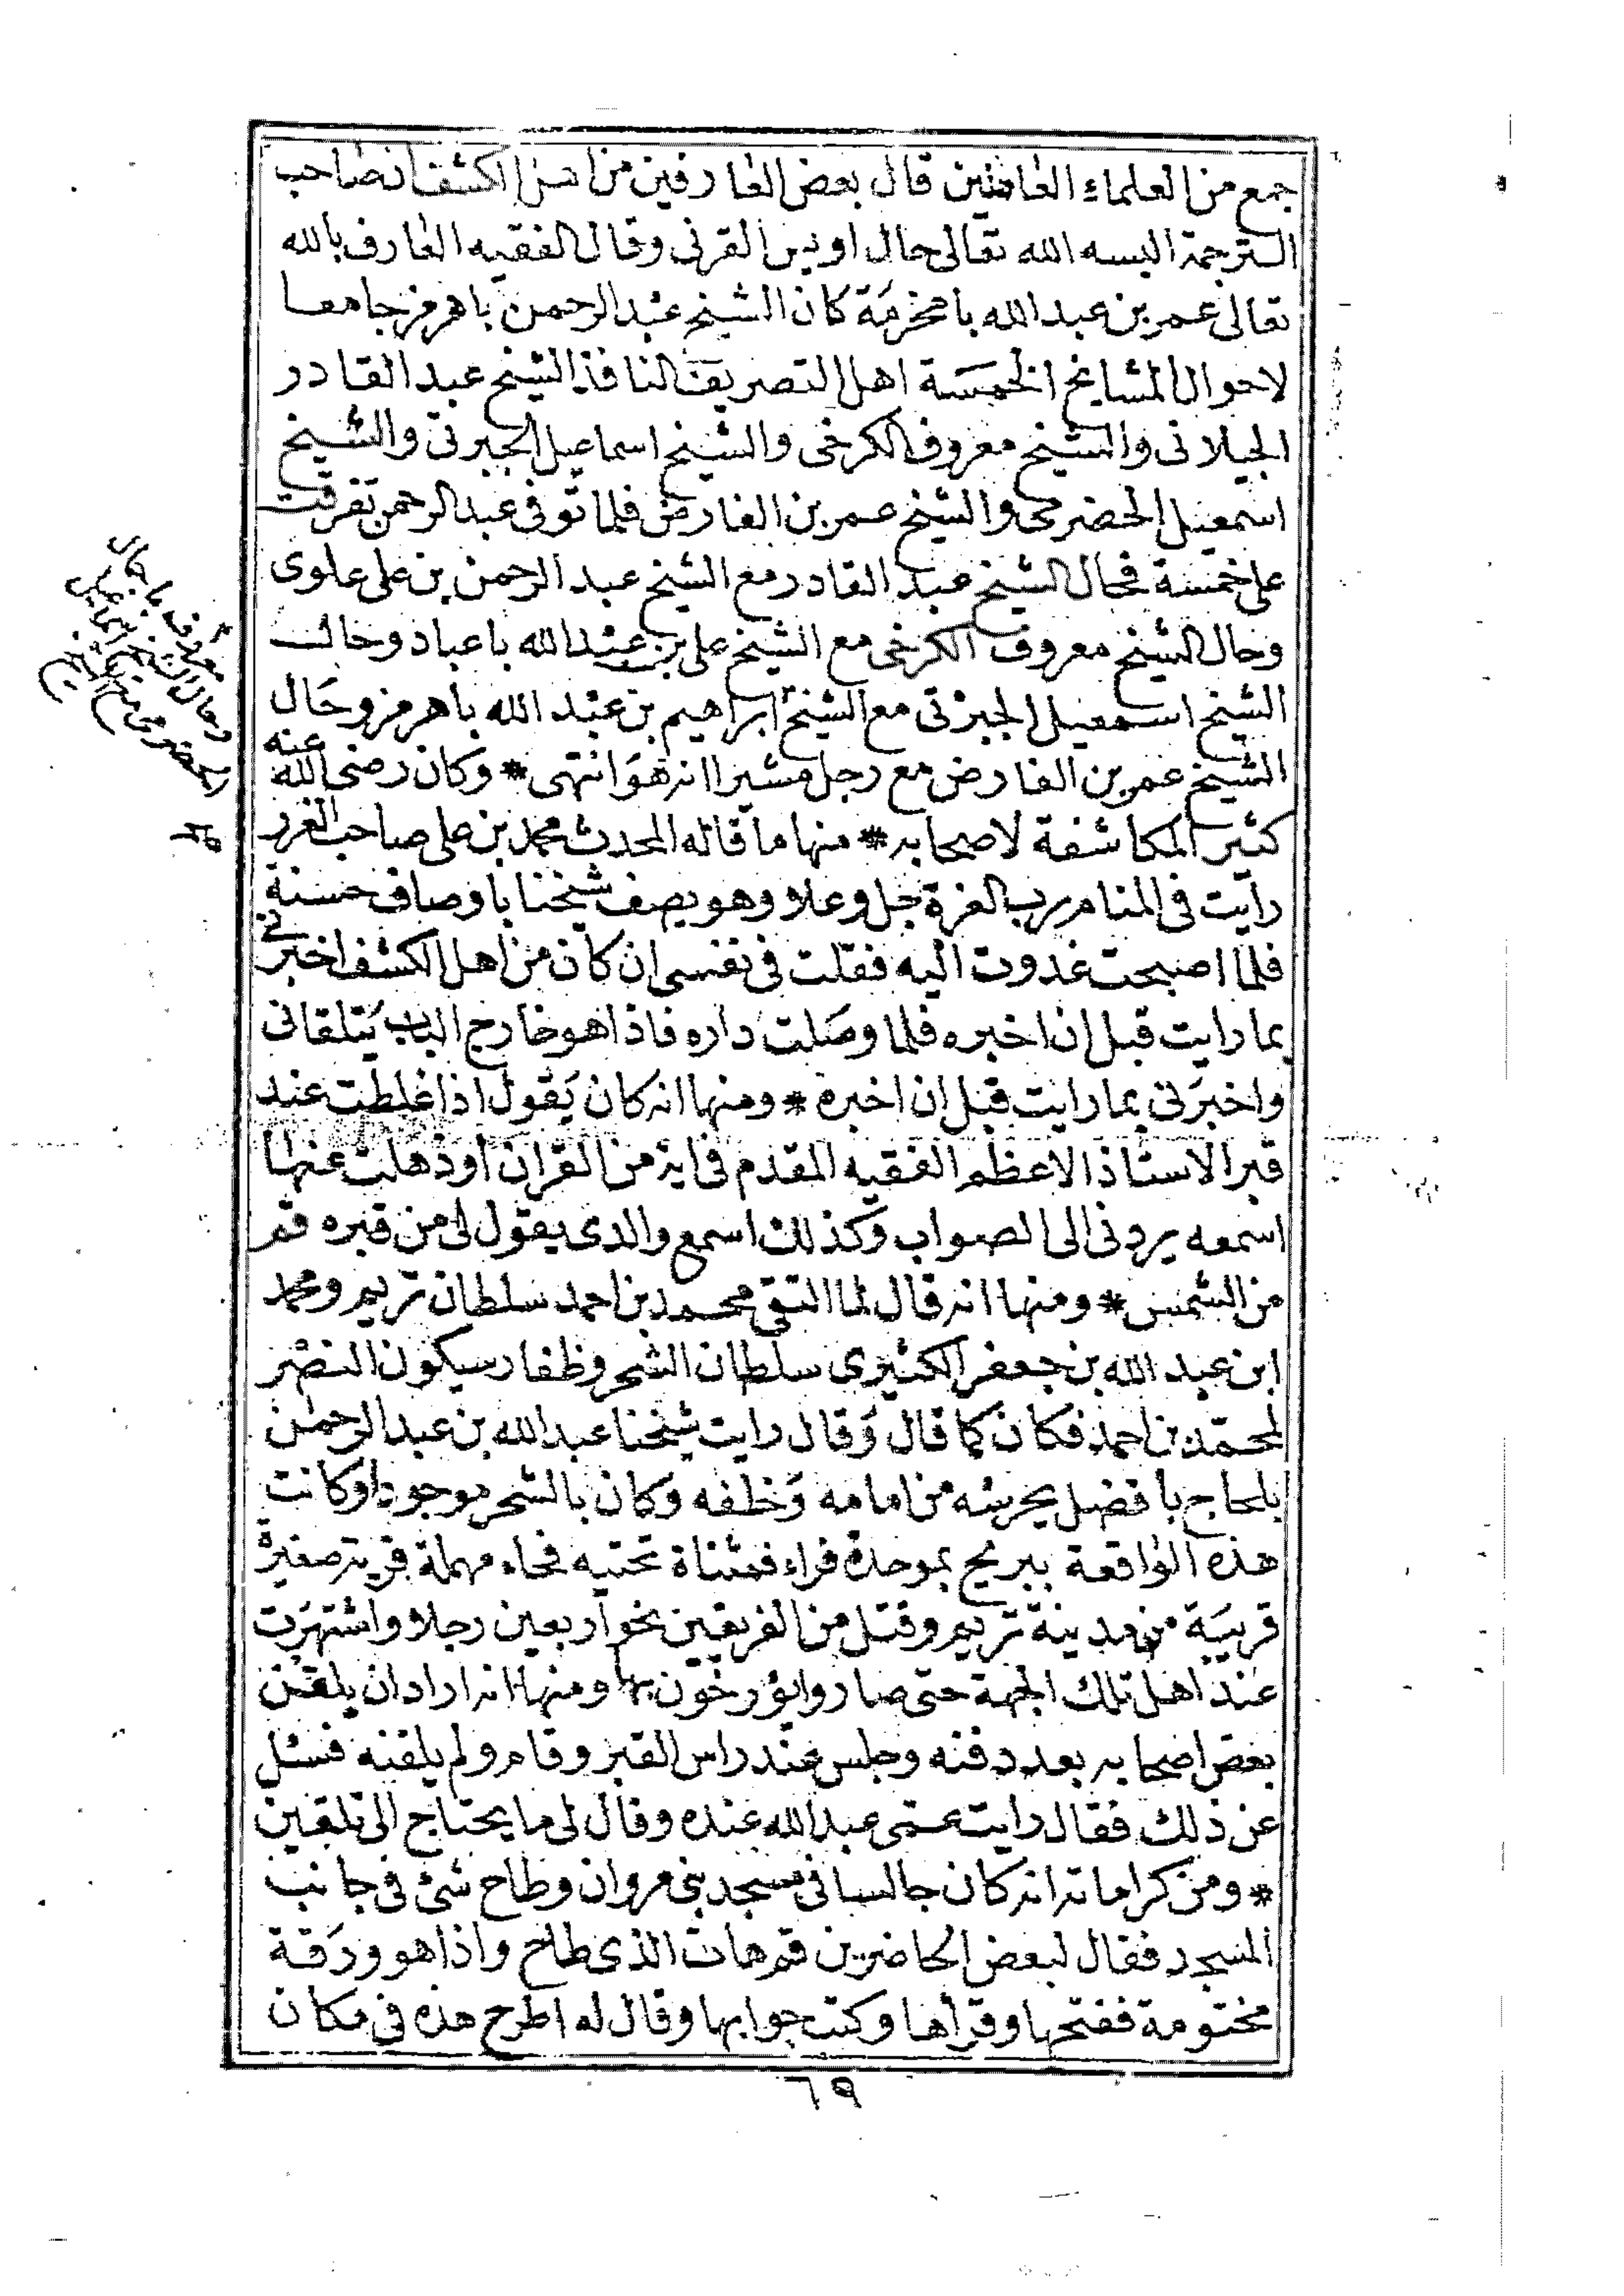 جمع من العلماء العاملين قال بعض العارفين من اهل الكشف ان صاحب
الترجمة البسه الله تعالى حال اويس القرنى وقال الفقيه العارف بالله
تعالى عمر بن عبد الله بامخرمَة كان الشيخ عبد الرحمن باهرمز جامعا
لاحوال المشايخ الخمسَة اهل التصريف النافذ الشيخ عبد القادر
الجيلانى والشيخ معروف الكرخى والشيخ اسماعيل الجبرتى والشيخ
اسمعيل الحضرمى والشيخ عمر بن الفارض فلما توفى عبد الرحمن تفرقت
على خمسة فحال الشيخ عبد القادر مع الشيخ عبد الرحمن بن على علوى
وحال الشيخ معروف الكرخى مع الشيخ على بن عبد الله باعباد وحال
الشيخ اسمعيل الجبرتى مع الشيخ ابراهيم بن عبد الله باهرمز وحَال
الشيخ عمر بن الفارض مع رجل مشيرا انه هوَ انتهى * وكان رضى الله عنه
كثير المكاشفة لاصحابه * منها ما قاله المحدث محمد بن على صاحب الغرر
رايت فى المنام رب العزة جل وعلا وهو يصف شيخنا باوصاف حسنة
فلما اصبحت غدوت اليه فقلت فى نفسى ان كان من اهل الكشف اخبرنى
بما رايت قبل ان اخبره فلما وصَلت داره فاذا هو خارج الباب يَتلقانى
واخبرَنى بما رايت قبل ان اخبره * ومنها انه كان يَقول اذا غلطت عند
قبر الاستاذ الاعظم الفقيه المقدم فى اية من القرآن او ذهلت عنها
اسمعه يردنى الى الصواب وكذلك اسمع والدى يقول لى من قبره قم
من الشمس * ومنها انه قال لما التقى محمد بن احمد سلطان تريم ومحمد
ابن عبد الله بن جعفر الكثيرى سلطان الشحر وظفار سيكون النصْر
لمحمّد بن احمد فكان كما قال وَقال رايت شيخنا عبد الله بن عبد الرحمٰن
بلحاج بافضل يحرسه من امامه وَخلفه وكان بالشحر موجودا وكانت
هذه الواقعة ببريح بموحدة فراء فمثناة تحتيه فحاء مهملة قرية صغيرة
قريبَة من مدينة تريم وقتل من الفريقين نحو اربعين رجلا واشتهرَت
عند اهل تلك الجهة حتى صاروا يؤرخون بها ومنها انه اراد ان يلقن
بعض اصحابه بعد دفنه وجلس عند راس القبر وقام ولم يلقنه فسئل
عن ذلك فقال رايت عمى عبد الله عنده وقال لى ما يحتاج الى تلقين
* ومن كراماته انه كان جالسا فى مسجد بنى مروان وطاح شئ فى جانب
المسجد فقال لبعض الحاضرين قم هات الذى طاح واذا هو ورَقة
مختومة ففتحها وقرأها وكتب جوابها وقال له اطرح هذه فى مكان
٦٩